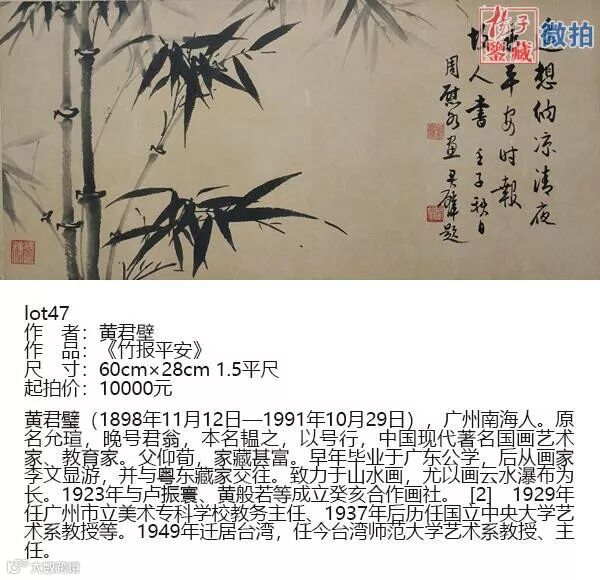 遥想纳凉清夜
平安时报
故人书 壬子秋日
周慰 画 君璧题
扬子
鉴藏
微拍
lot47
作 者：黄君壁
作 品：《竹报平安》
尺 寸：60cm×28cm 1.5平尺
起拍价：10000元
黄君璧（1898年11月12日—1991年10月29日），广州南海人。原
名允瑄，晚号君翁，本名韫之，以号行，中国现代著名国画艺术
家、教育家。父仰荀，家藏甚富。早年毕业于广东公学，后从画家
李文显游，并与粤东藏家交往。致力于山水画，尤以画云水瀑布为
长。1923年与卢振寰、黄般若等成立癸亥合作画社。 [2] 1929年
任广州市立美术专科学校教务主任、1937年后历任国立中央大学艺
术系教授等。1949年迁居台湾，任今台湾师范大学艺术系教授、主
任.
大数跨境